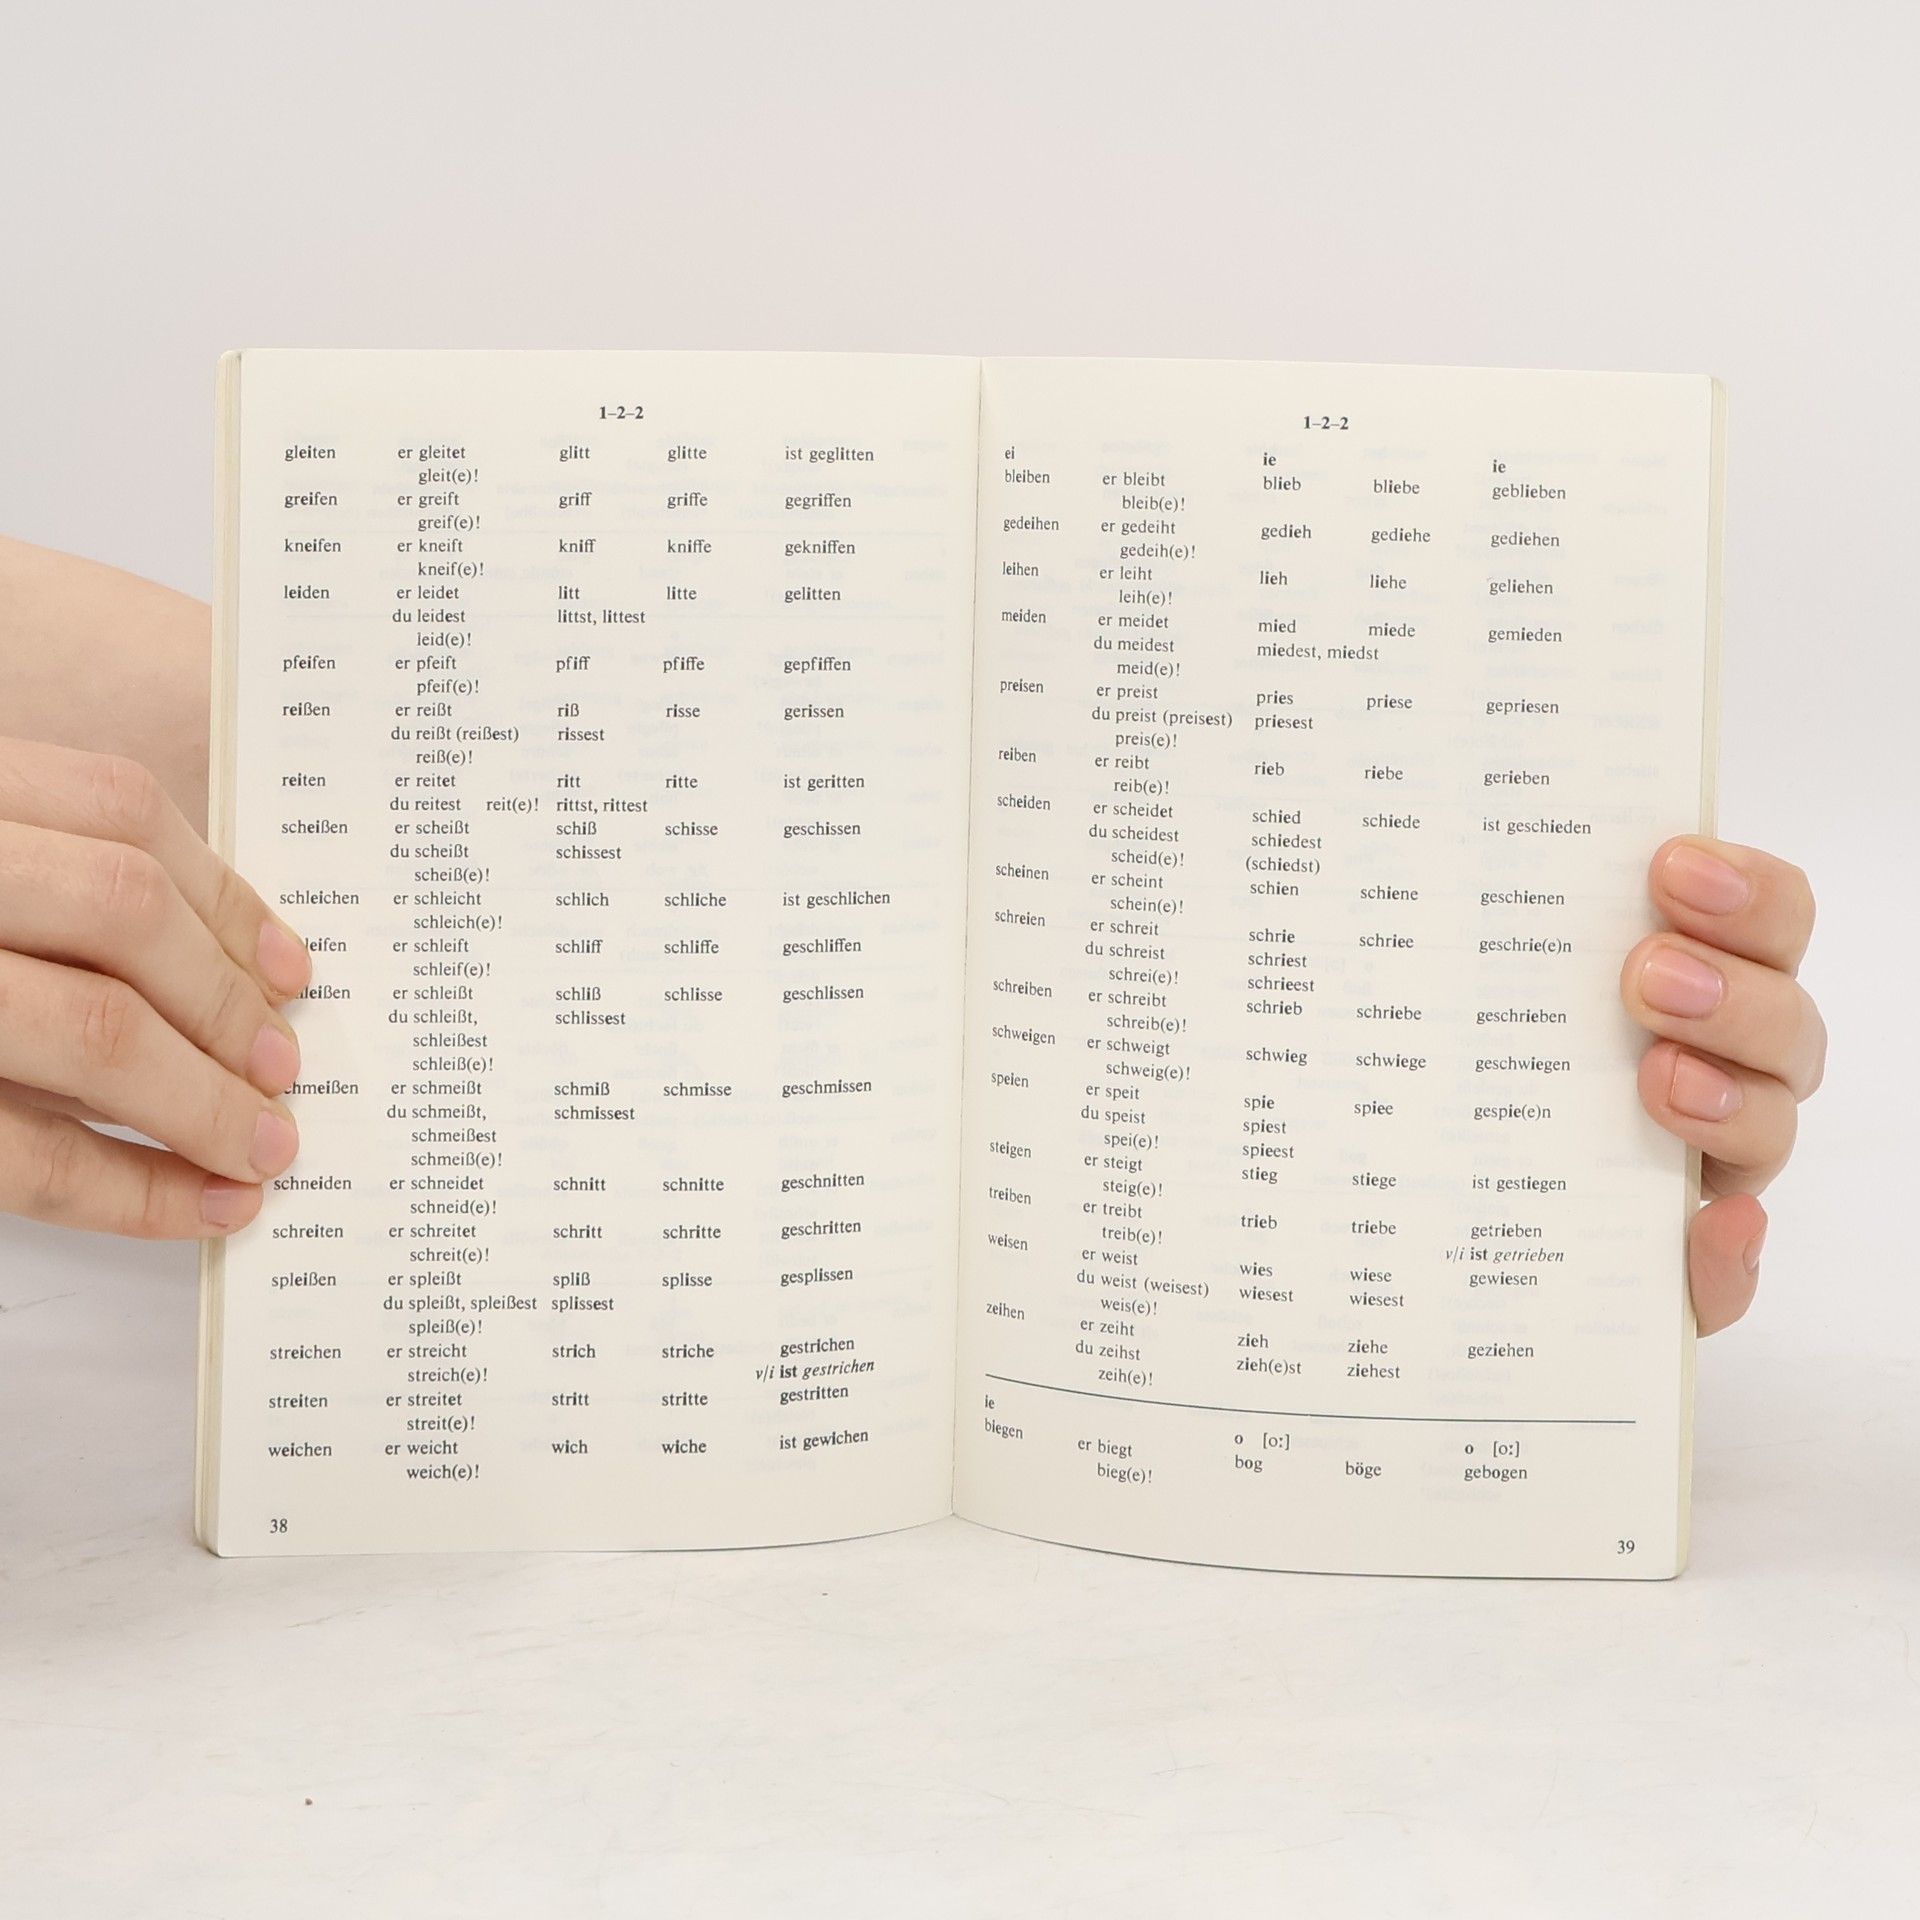 1–2–2
gleiten er gleitet glitt glitte ist geglitten
gleit(e)!
greifen er greift griff griffe gegriffen
greif(e)!
kneifen er kneift kniff kniffe gekniffen
kneif(e)!
leiden er leidet litt litte gelitten
du leidest littst, littest
leid(e)!
pfeifen er pfeift pfiff pfiffe gepfiffen
pfeif(e)!
reißen er reißt riß risse gerissen
du reißt (reißest) rissest
reiß(e)!
reiten er reitet ritt ritte ist geritten
du reitest reit(e)! rittst, rittest
scheißen er scheißt schiß schisse geschissen
du scheißt schissest
scheiß(e)!
schleichen er schleicht schlich schliche ist geschlichen
schleich(e)!
leifen er schleift schliff schliffe geschliffen
schleif(e)!
leißen er schleißt schliß schlisse geschlissen
du schleißt, schlissest
schleißest
schleiß(e)!
chmeißen er schmeißt schmiß schmisse geschmissen
du schmeißt, schmissest
schmeißest
schmeiß(e)!
schneiden er schneidet schnitt schnitte geschnitten
schneid(e)!
schreiten er schreitet schritt schritte geschritten
schreit(e)!
spleißen er spleißt spliß splisse gesplissen
du spleißt, spleißest splissest
spleiß(e)!
streichen er streicht strich striche gestrichen
streich(e)! v/i ist gestrichen
streiten er streitet stritt stritte gestritten
streit(e)!
weichen er weicht wich wiche ist gewichen
weich(e)!
38
1–2–2
ei ie ie
bleiben er bleibt blieb bliebe geblieben
bleib(e)!
gedeihen er gedeiht gedieh gediehe gediehen
gedeih(e)!
leihen er leiht lieh liehe geliehen
leih(e)!
meiden er meidet mied miede gemieden
du meidest miedest, miedst
meid(e)!
preisen er preist pries priese gepriesen
du preist (preisest) priesest
preis(e)!
reiben er reibt rieb riebe gerieben
reib(e)!
scheiden er scheidet schied schiede ist geschieden
du scheidest schiedest
scheid(e)! (schiedst)
scheinen er scheint schien schiene geschienen
schein(e)!
schreien er schreit schrie schriee geschrie(e)n
du schreist schriest
schrei(e)! schrieest
schreiben er schreibt schrieb schriebe geschrieben
schreib(e)!
schweigen er schweigt schwieg schwiege geschwiegen
schweig(e)!
speien er speit spie spiee gespie(e)n
du speist spiest
spei(e)! spieest
steigen er steigt stieg stiege ist gestiegen
steig(e)!
treiben er treibt trieb triebe getrieben
treib(e)! v/i ist getrieben
weisen er weist wies wiese gewiesen
du weist (weisest) wiesest wiesest
weis(e)!
zeihen er zeiht zieh ziehe geziehen
du zeihst zieh(e)st ziehest
zeih(e)!
ie o [o:] o [o:]
biegen er biegt bog böge gebogen
bieg(e)!
39